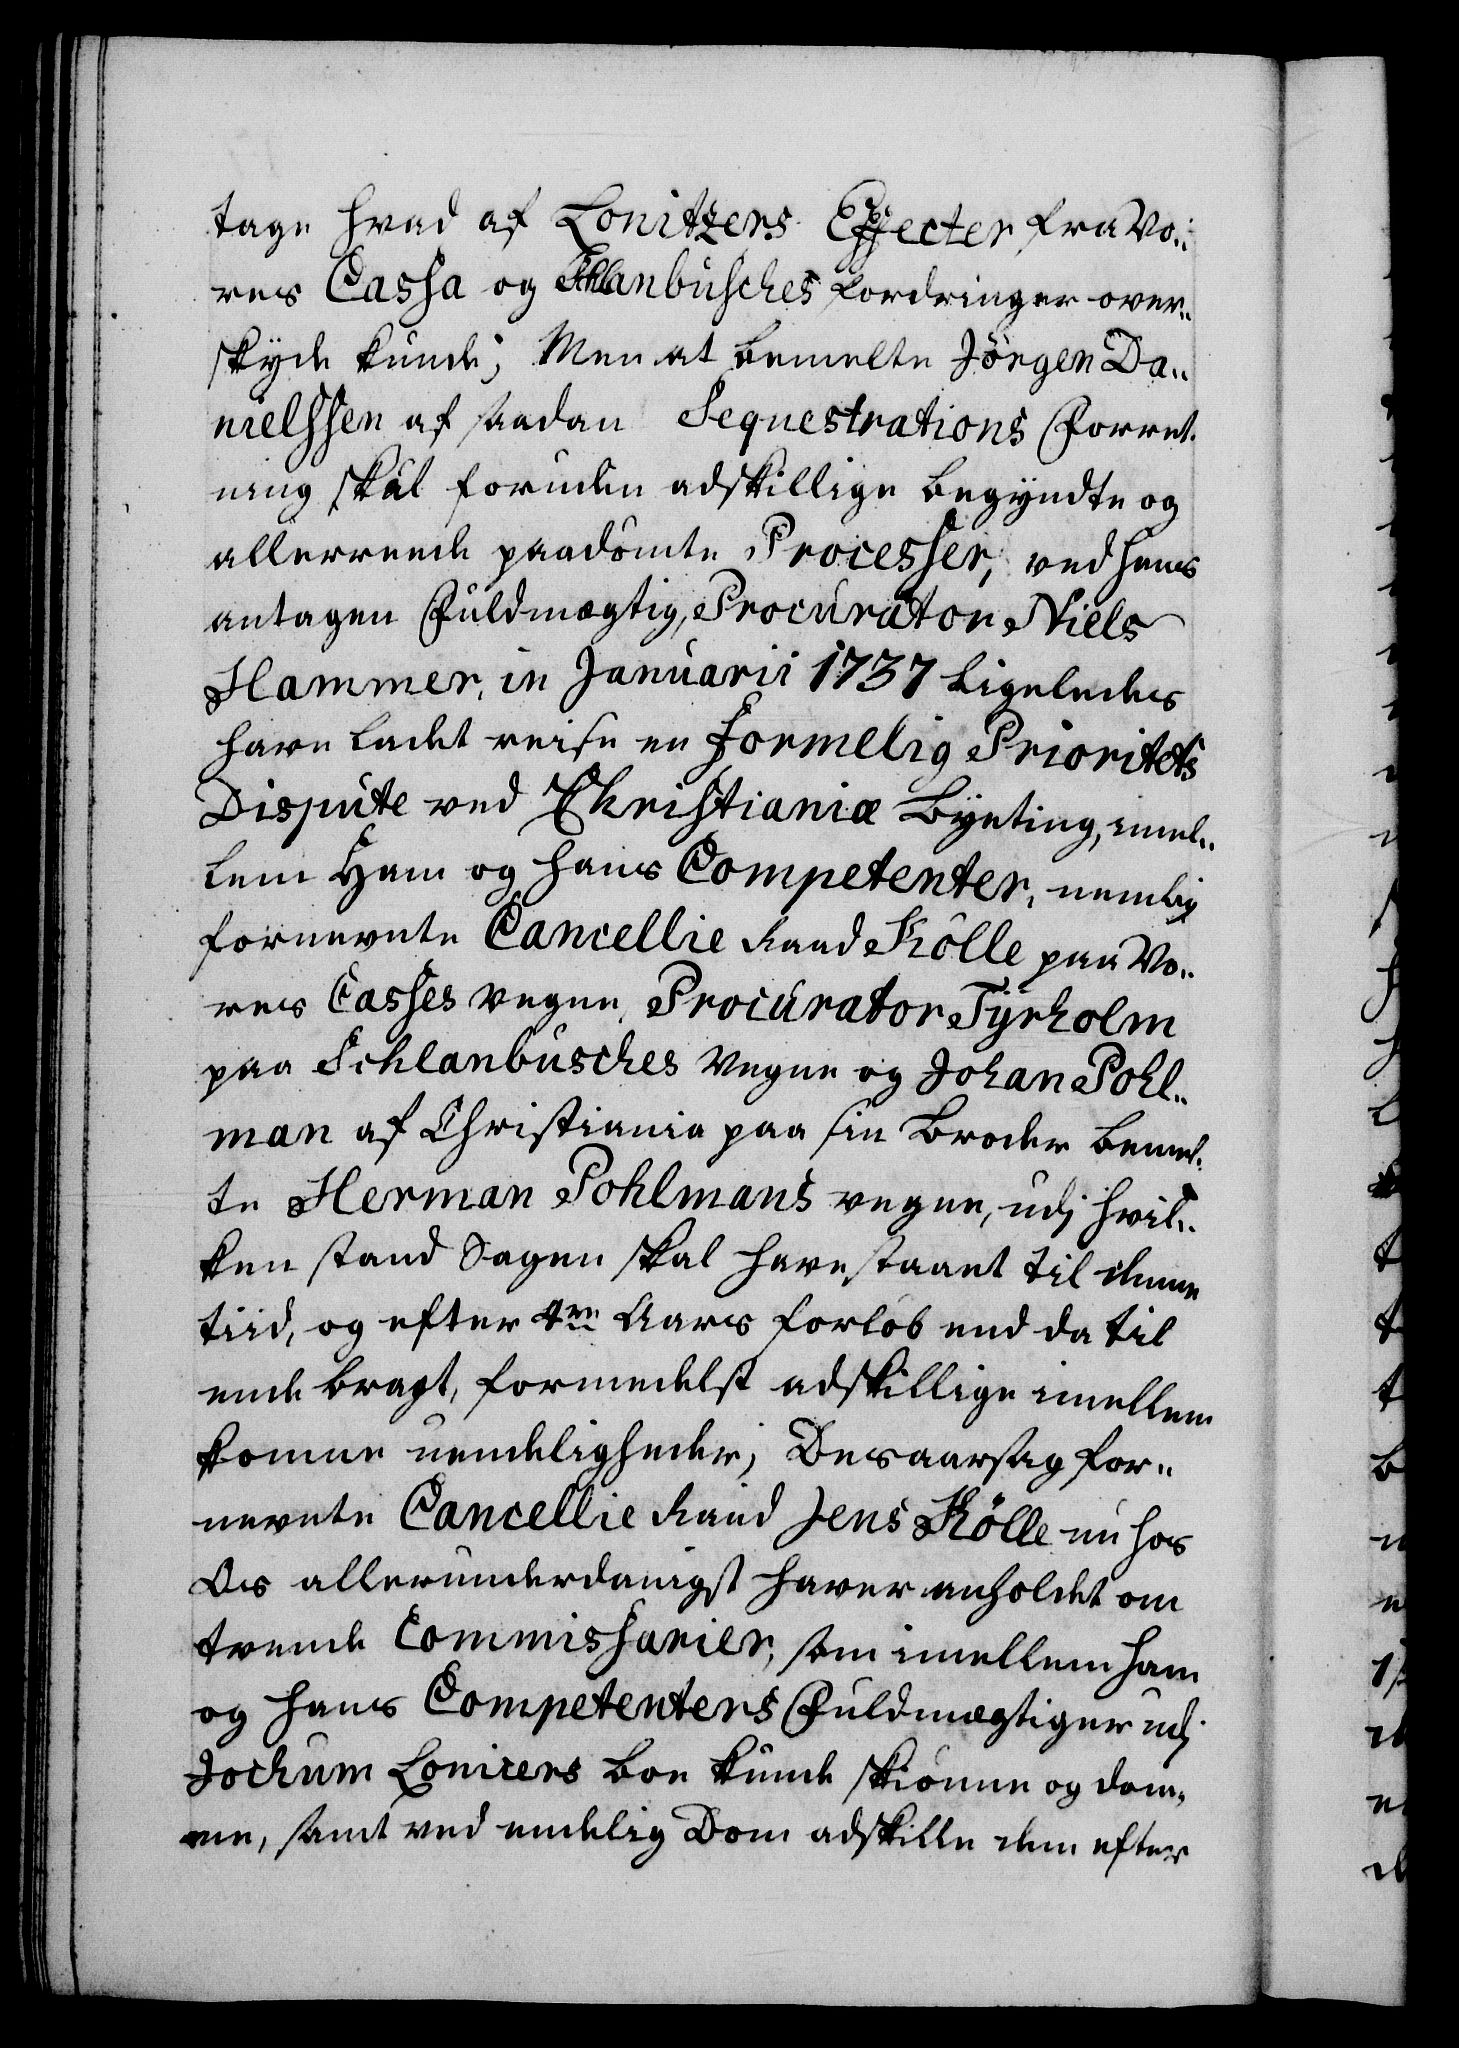 tage hvad af Lonitzers Effecter fra Vo„
res Cassa og Schlanbusches fordringer over„
skyde kunde; Men at bemelte Jörgen Da„
nielssen af saadan Sequestrations Forret„
ning skal foruden adskillige begyndte og
allerreede paadömte Processer, ved hans
antagen Fuldmægtig, Procurator Niels
Hammer, in Januarii 1737 ligeledes
have ladet reise en formelig Prioritets
Dispute ved Christianiæ Byeting, imel„
lem Ham og hans Competenter, nemlig
fornevnte Cancellie Raad Kölle paa Vo„
res Casses vegne, Procurator Tyrholm
paa Schlanbusches vegne og Johan Pohl„
man af Christiania paa sin Broder bemel„
te Herman Pohlmans vegne, udj hvil„
ken stand Sagen skal have staaet til denne
tiid, og efter 4re Aars forlöb end da til
ende bragt, formedelst adskillige imellem
komne uendeligheder; Desaarsag for„
nevnte Cancellie Raad Jens Kölle nu hos
Os allerunderdanigst haver anholdet om
tvende Commissarier, som imellem ham
og hans Competenters Fuldmægtiger udj
Jochum Lonicers boe kunde skiönne og döm„
me, samt ved endelig Dom adskille dem efter